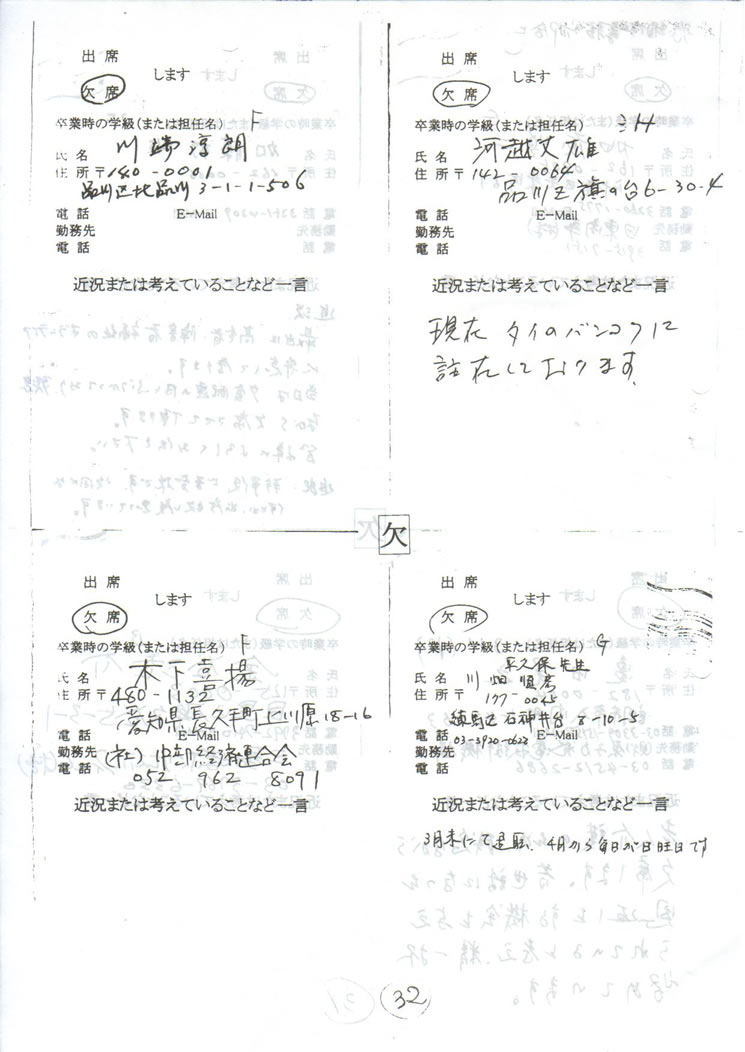 出席
します
欠席
卒業時の学級(または担任名) F
氏名 川崎淳朗
住所〒140-0001
品川区北品川3-1-1-506
電話 E-Mail
勤務先
電話
近況または考えていることなど一言
出席
します
欠席
卒業時の学級(または担任名) 3H
氏名 河越丈雄
住所〒142-0064
品川区旗の台6-30-4
電話 E-Mail
勤務先
電話
近況または考えていることなど一言
現在 タイのバンコクに
註在しております
欠
出席
します
欠席
卒業時の学級(または担任名) F
氏名 木下喜揚
住所〒480-1132
愛知県長久手町上川原18-16
電話 E-Mail
勤務先 (社)中部経済連合会
電話 052 962 8091
近況または考えていることなど一言
出席
します
欠席
卒業時の学級(または担任名) G
平久保先生
氏名 川畑
住所〒177-0045
練馬区石神井台 8-10-5
電話 03-3920-0628 E-Mail
勤務先
電話
近況または考えていることなど一言
3月末にて退職、4月から毎日が日曜日です
32